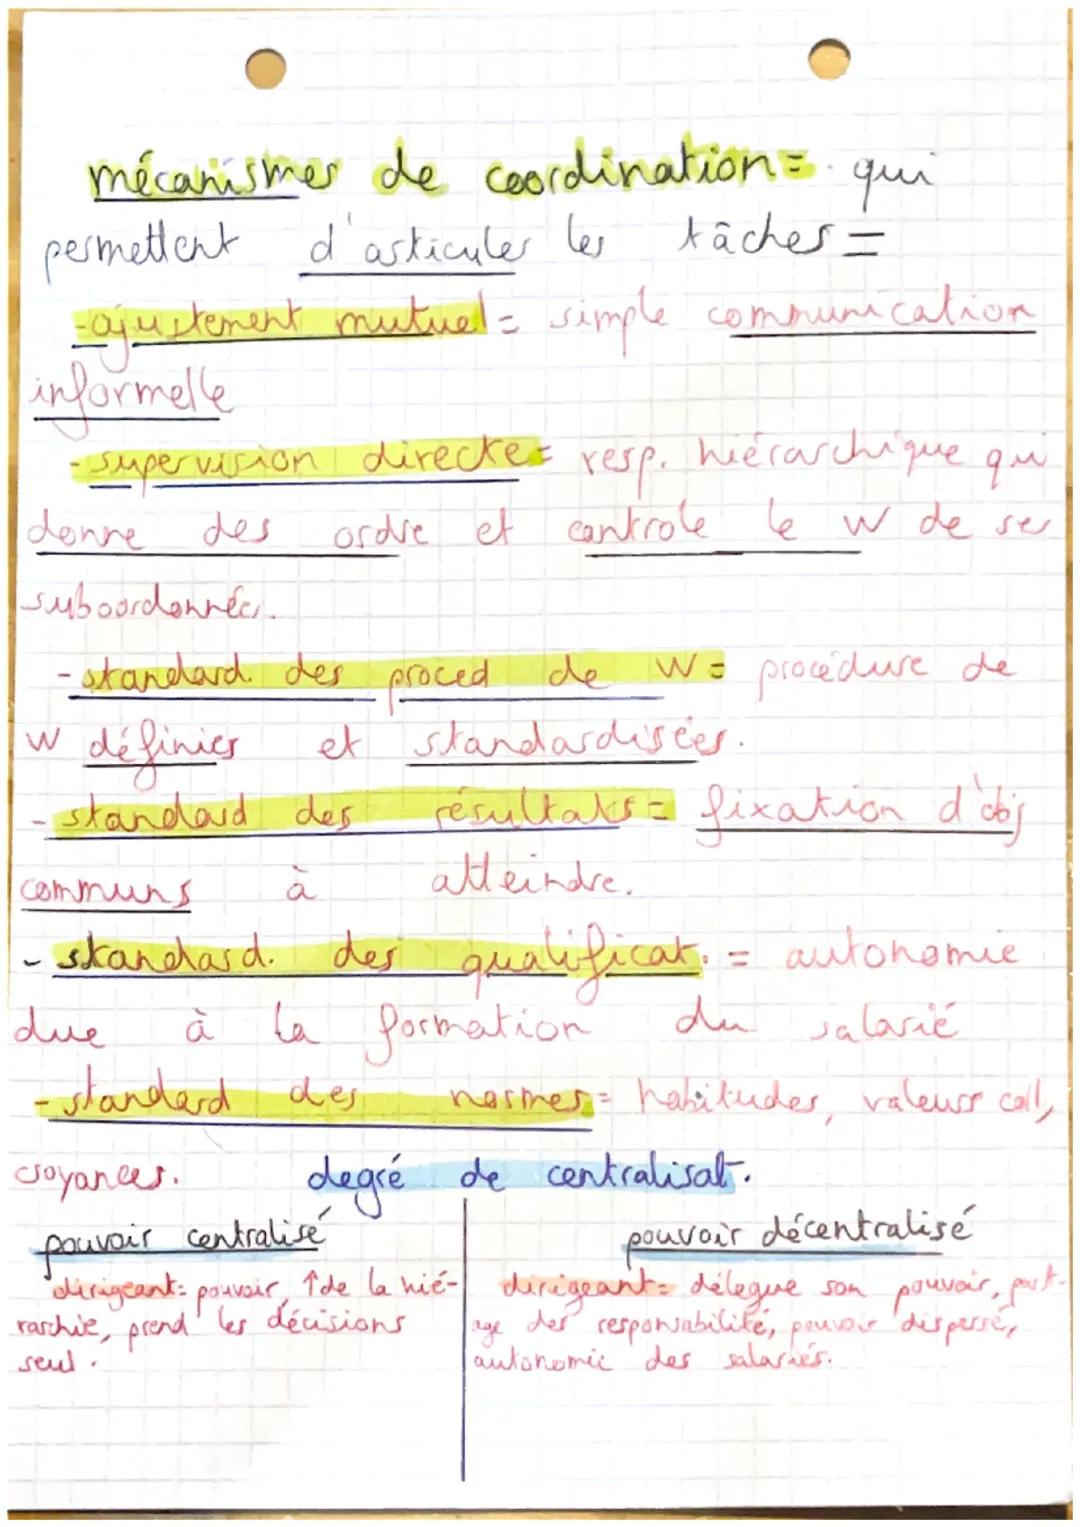 mécanismes de coordination = qui
permettent d'articuler les tâches =
- ajustement mutuel = simple communication
informelle
- supervision directe = resp. hiérarchique qui
donne des ordre et controle le W de ses
suboordonnées.
- standard. des proced de W = procédure de
W définies et standardisées.
- standard des résultats = fixation d'obj
communs à atteindre.
- standard. des qualificat. = autonomie
due à la formation du salarié
- standard des normes = habitudes, valeurs coll,
croyances.
degré de centralisat.
pouvoir centralisé
dirigeant = pouvoir, ↑ de la hié-
rarchie, prend les décisions
seul.
pouvoir décentralisé
dirigeant = délègue son pouvoir, part-
age des responsabilité, pouvoir dispersé,
autonomie des salariés.